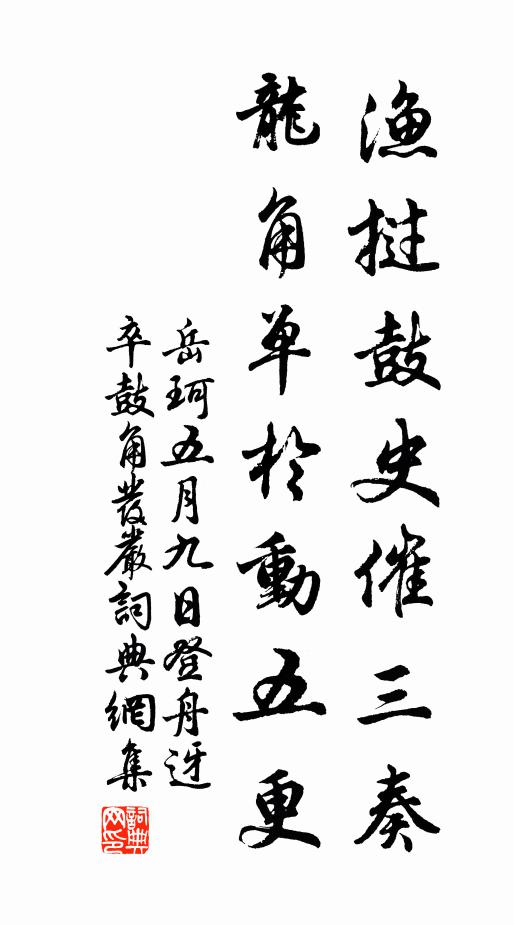 漁撾鼓史催三奏
龍角单於動五更
岳珂五月九日登舟迓
卒鼓角發嚴詞典網集
詞典网印